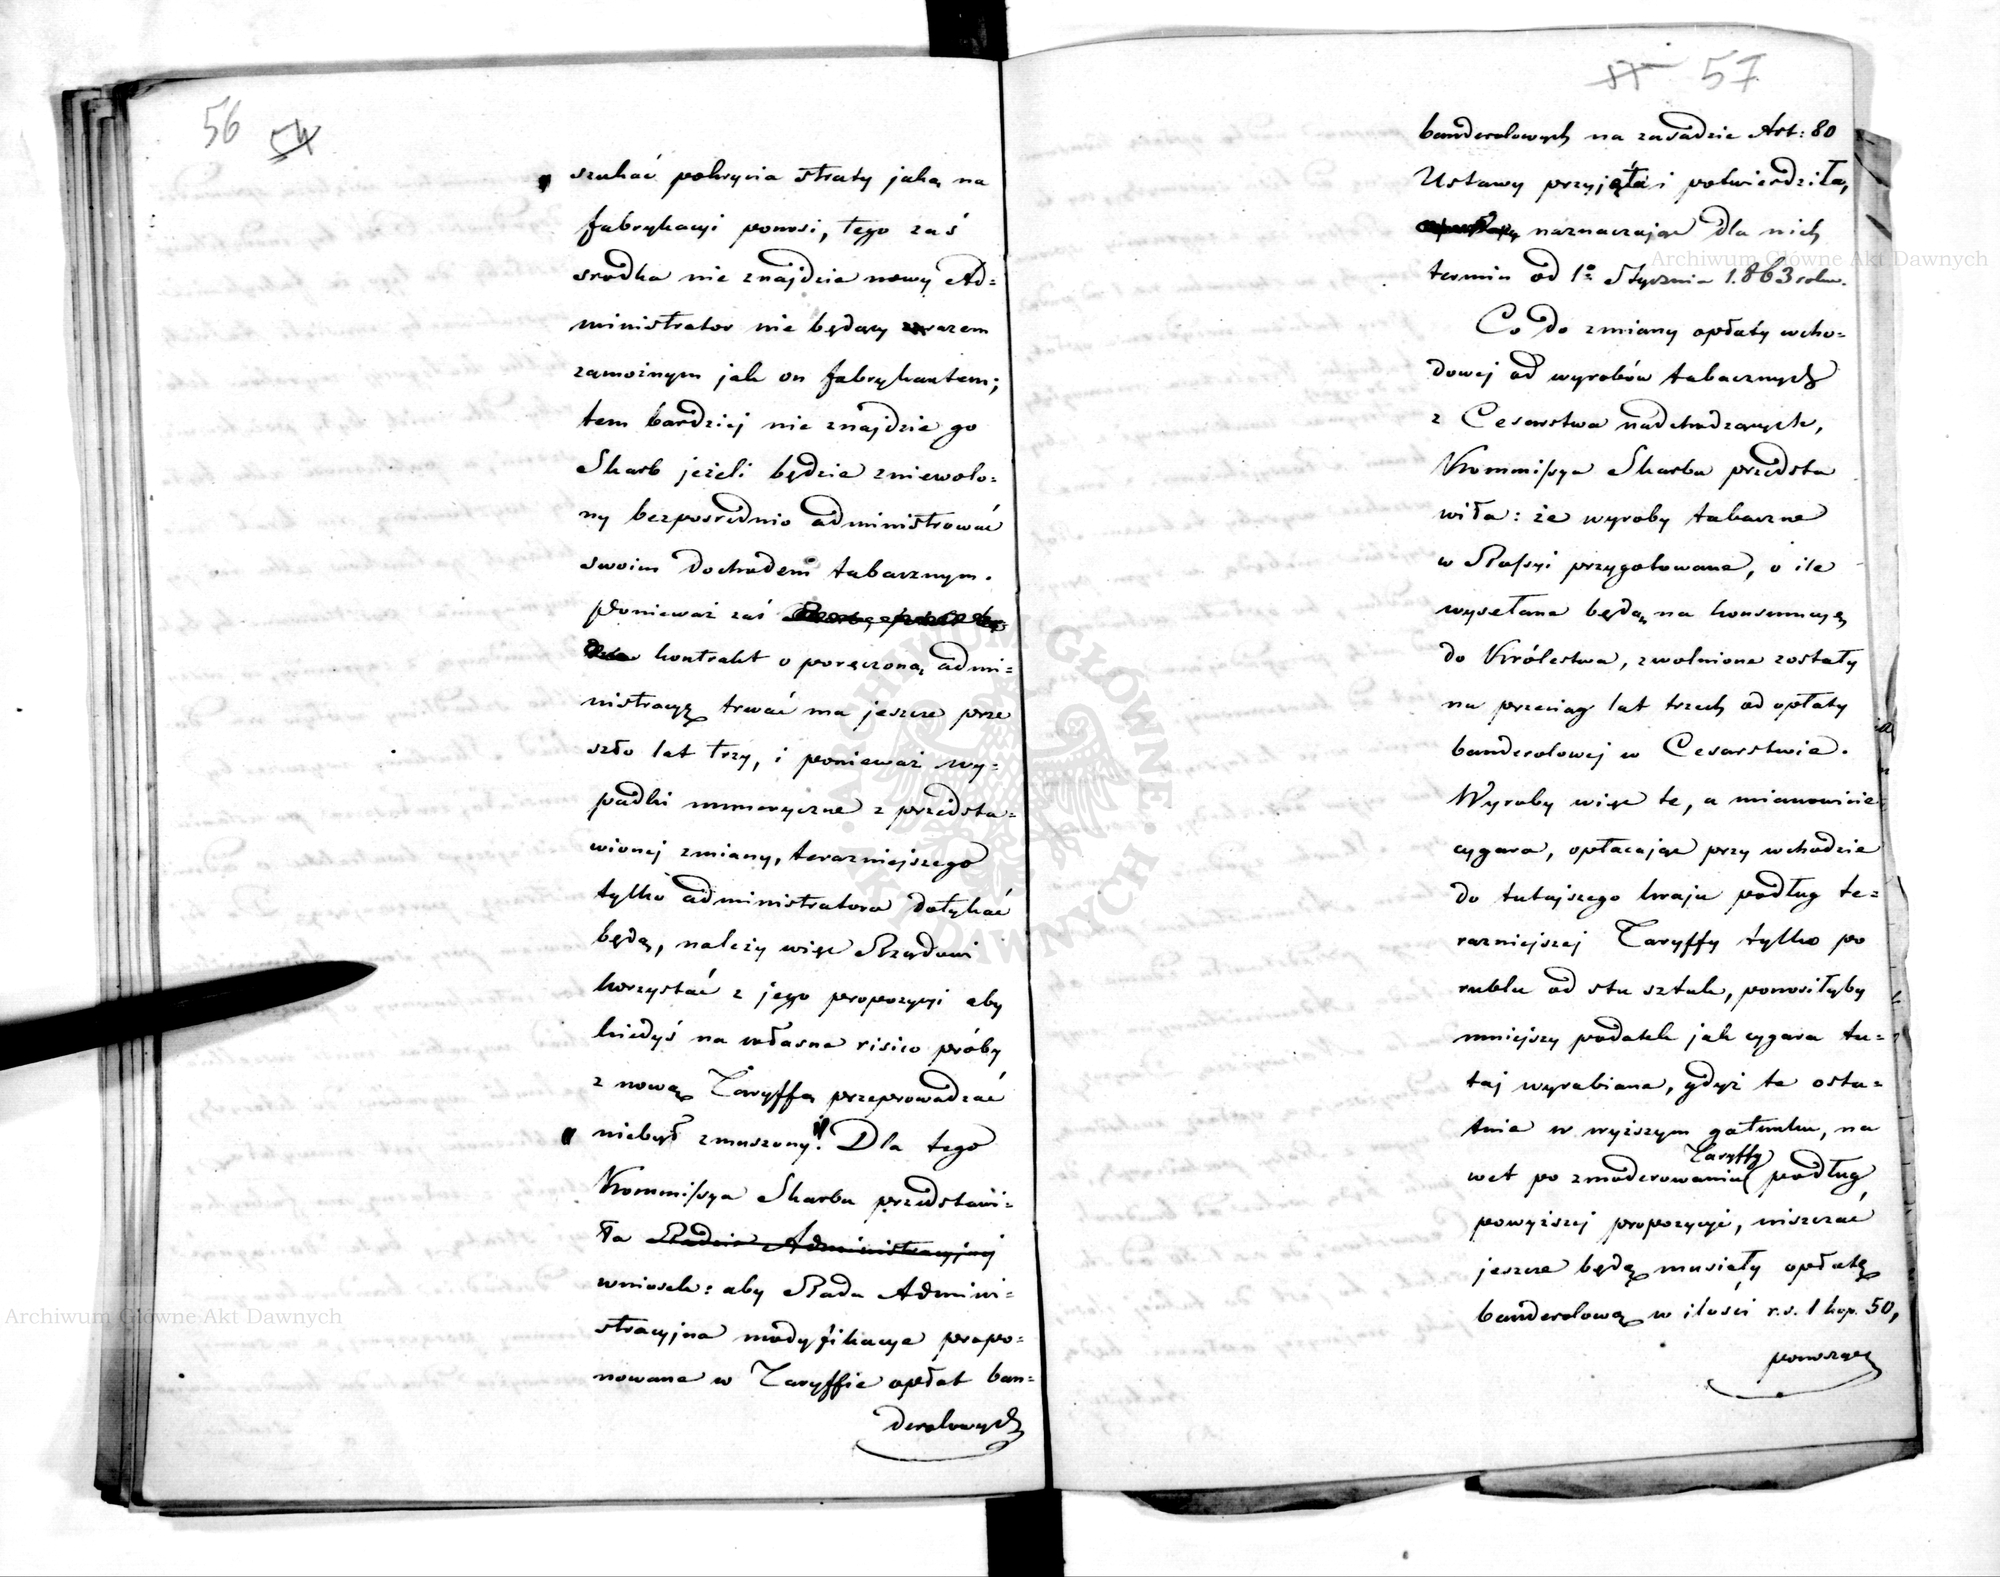 56 54
„ szukać pokrycia straty jaką na
fabrykacyi ponosi, tego zaś
srodka nie znajdzie nowy Ad=
ministrator nie będący zarazem
zamożnym jak on fabrykantem;
tem bardziej nie znajdzie go
Skarb jeżeli będzie zniewolo=
ny bezposrednio administrować
swoim dochodem tabacznym.
Ponieważ zaś
kontrakt o poręczoną admi=
nistracyą trwać ma jeszcze prze
szło lat trzy, i ponieważ wy=
padki numeryczne z przedsta=
wionej zmiany, terazniejszego
tylko administratora dotykać
będą, należy więc Rządowi
korzystać z jego propozycyi aby
kiedyś na własne risico próby
z nową Taryffą przeprowadzać
niebył zmuszony." Dla tego
Kommissya Skarbu przedstawi=
ła Radzie Administracyjnej
wniosek: aby Rada Admini=
stracyjna modyfikacye propo=
nowane w Taryffie opłat ban=
derolowych
57
banderolowych na zasadzie Art: 80
Ustawy przyjęła i potwierdziła,
naznaczając dla nich
termin od 1o Stycznia 1.863 roku.
Co do zmiany opłaty wcho=
dowej od wyrobów tabacznych
z Cesarstwa nadchodzących,
Kommissya Skarbu przedsta
wiła: że wyroby tabaczne
w Rossyi przygotowane, o ile
wysełane będą na konsumcyą
do Królestwa, zwolnione zostały
na przeciąg lat trzech od opłaty
banderolowej w Cesarstwie.
Wyroby więc te, a mianowicie
cygara, opłacając przy wchodzie
do tutejszego kraju podług te=
razniejszej Taryffy tylko po
rublu od stu sztuk, ponosiłyby
mniejszy podatek jak cygara tu=
taj wyrabiane, gdyż te osta=
tnie w wyższym gatunku, na
wet po zmoderowaniu Taryffy podług
powyższej propozycyi, uiszczać
jeszcze będą musiały opłatę
banderolową w ilości r.s. 1 kop. 50,
ponosząc
Archiwum Główne Akt Dawnych
Archiwum Główne Akt Dawnych
ARCHIWUM GŁÓWNE AKT DAWNYCH